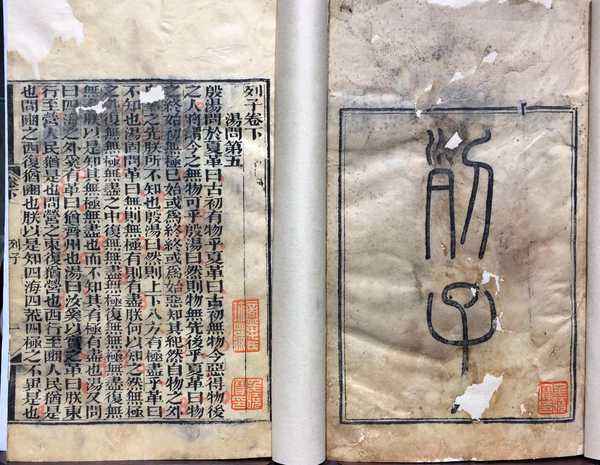 列子
列子卷下
湯問第五
殷湯問於夏革曰古初有物乎夏革曰古初無物今惡得物後
之人將謂今之無物可乎殷湯曰然則物無先後乎夏革曰物
之終始初無極已始或爲終終或爲始惡知其紀然自物之外
事之先朕所不知也殷湯曰然則上下八方有極盡乎革曰
不知也湯固問革曰無則無極有則有盡朕何以知之然無極
之外復無無極無盡之中復無無盡無極復無無極無盡復無
無盡朕以是知其無極無盡也而不知其有極有盡也湯又問
曰四海之外奚有革曰猶齊州也湯曰汝奚以實之革曰朕東
行至營人民猶是也問營之東復猶營也西行至豳人民猶是
也問豳之西復猶豳也朕以是知四海四荒四極之不異是也
卷下 列子 一